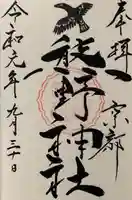 奉拝
京都
熊野神社
令和元年九月三十日